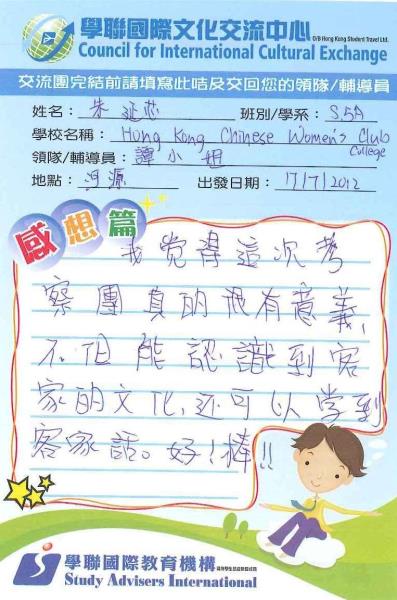 學聯國際文化交流中心 O/B Hong Kong Student Travel Ltd.
Council for International Cultural Exchange
交流團完結前請填寫此咭及交回您的領隊/輔導員
姓名： 朱 班別/學系： S.5A
學校名稱： Hong Kong Chinese Women's Club College
領隊/輔導員： 譚小姐
地點： 河源 出發日期： 17/7/2012
感想篇
我覚得這次考
察團真的很有意義,
不但能認識到客
家的文化,还可以学到
客家話。好!棒!!
學聯國際教育機構
Study Advisers International